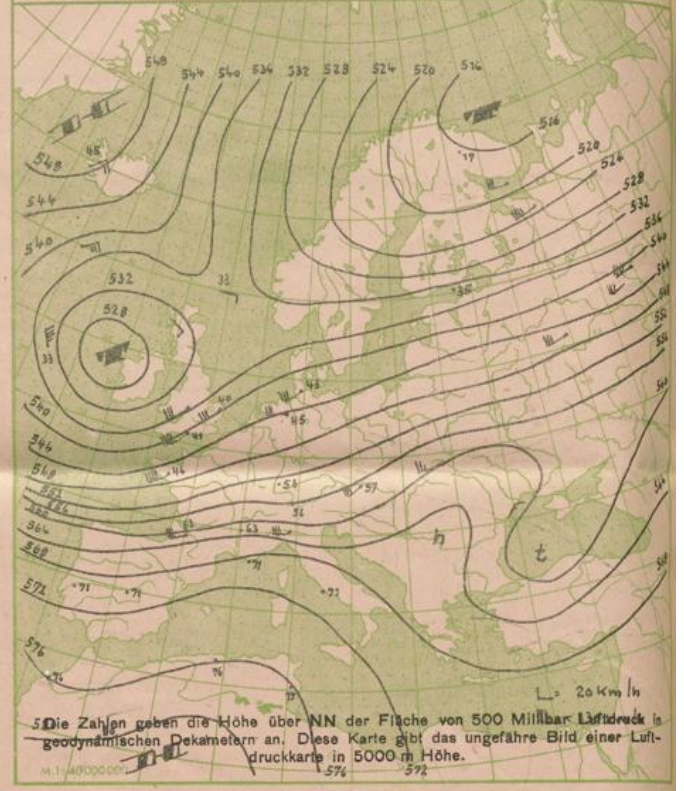 548 544 540 536 532 528 524 520 516
516
520
524
528
532
536
540
544
548
552
556
560
564
568
45
548
544
540
17
33
35
532
528
33
540
544
548
552
556
560
564
568
572
576
40
43
45
41
46
54
57
56
63
63
71
71
71
72
76
76
77
h
t
L = 20 Km/h
Die Zahlen geben die Höhe über NN der Fläche von 500 Millibar Luftdruck in
geodynamischen Dekametern an. Diese Karte gibt das ungefähre Bild einer Luft-
druckkarte in 5000 m Höhe.
M. 1:40000000
576 572